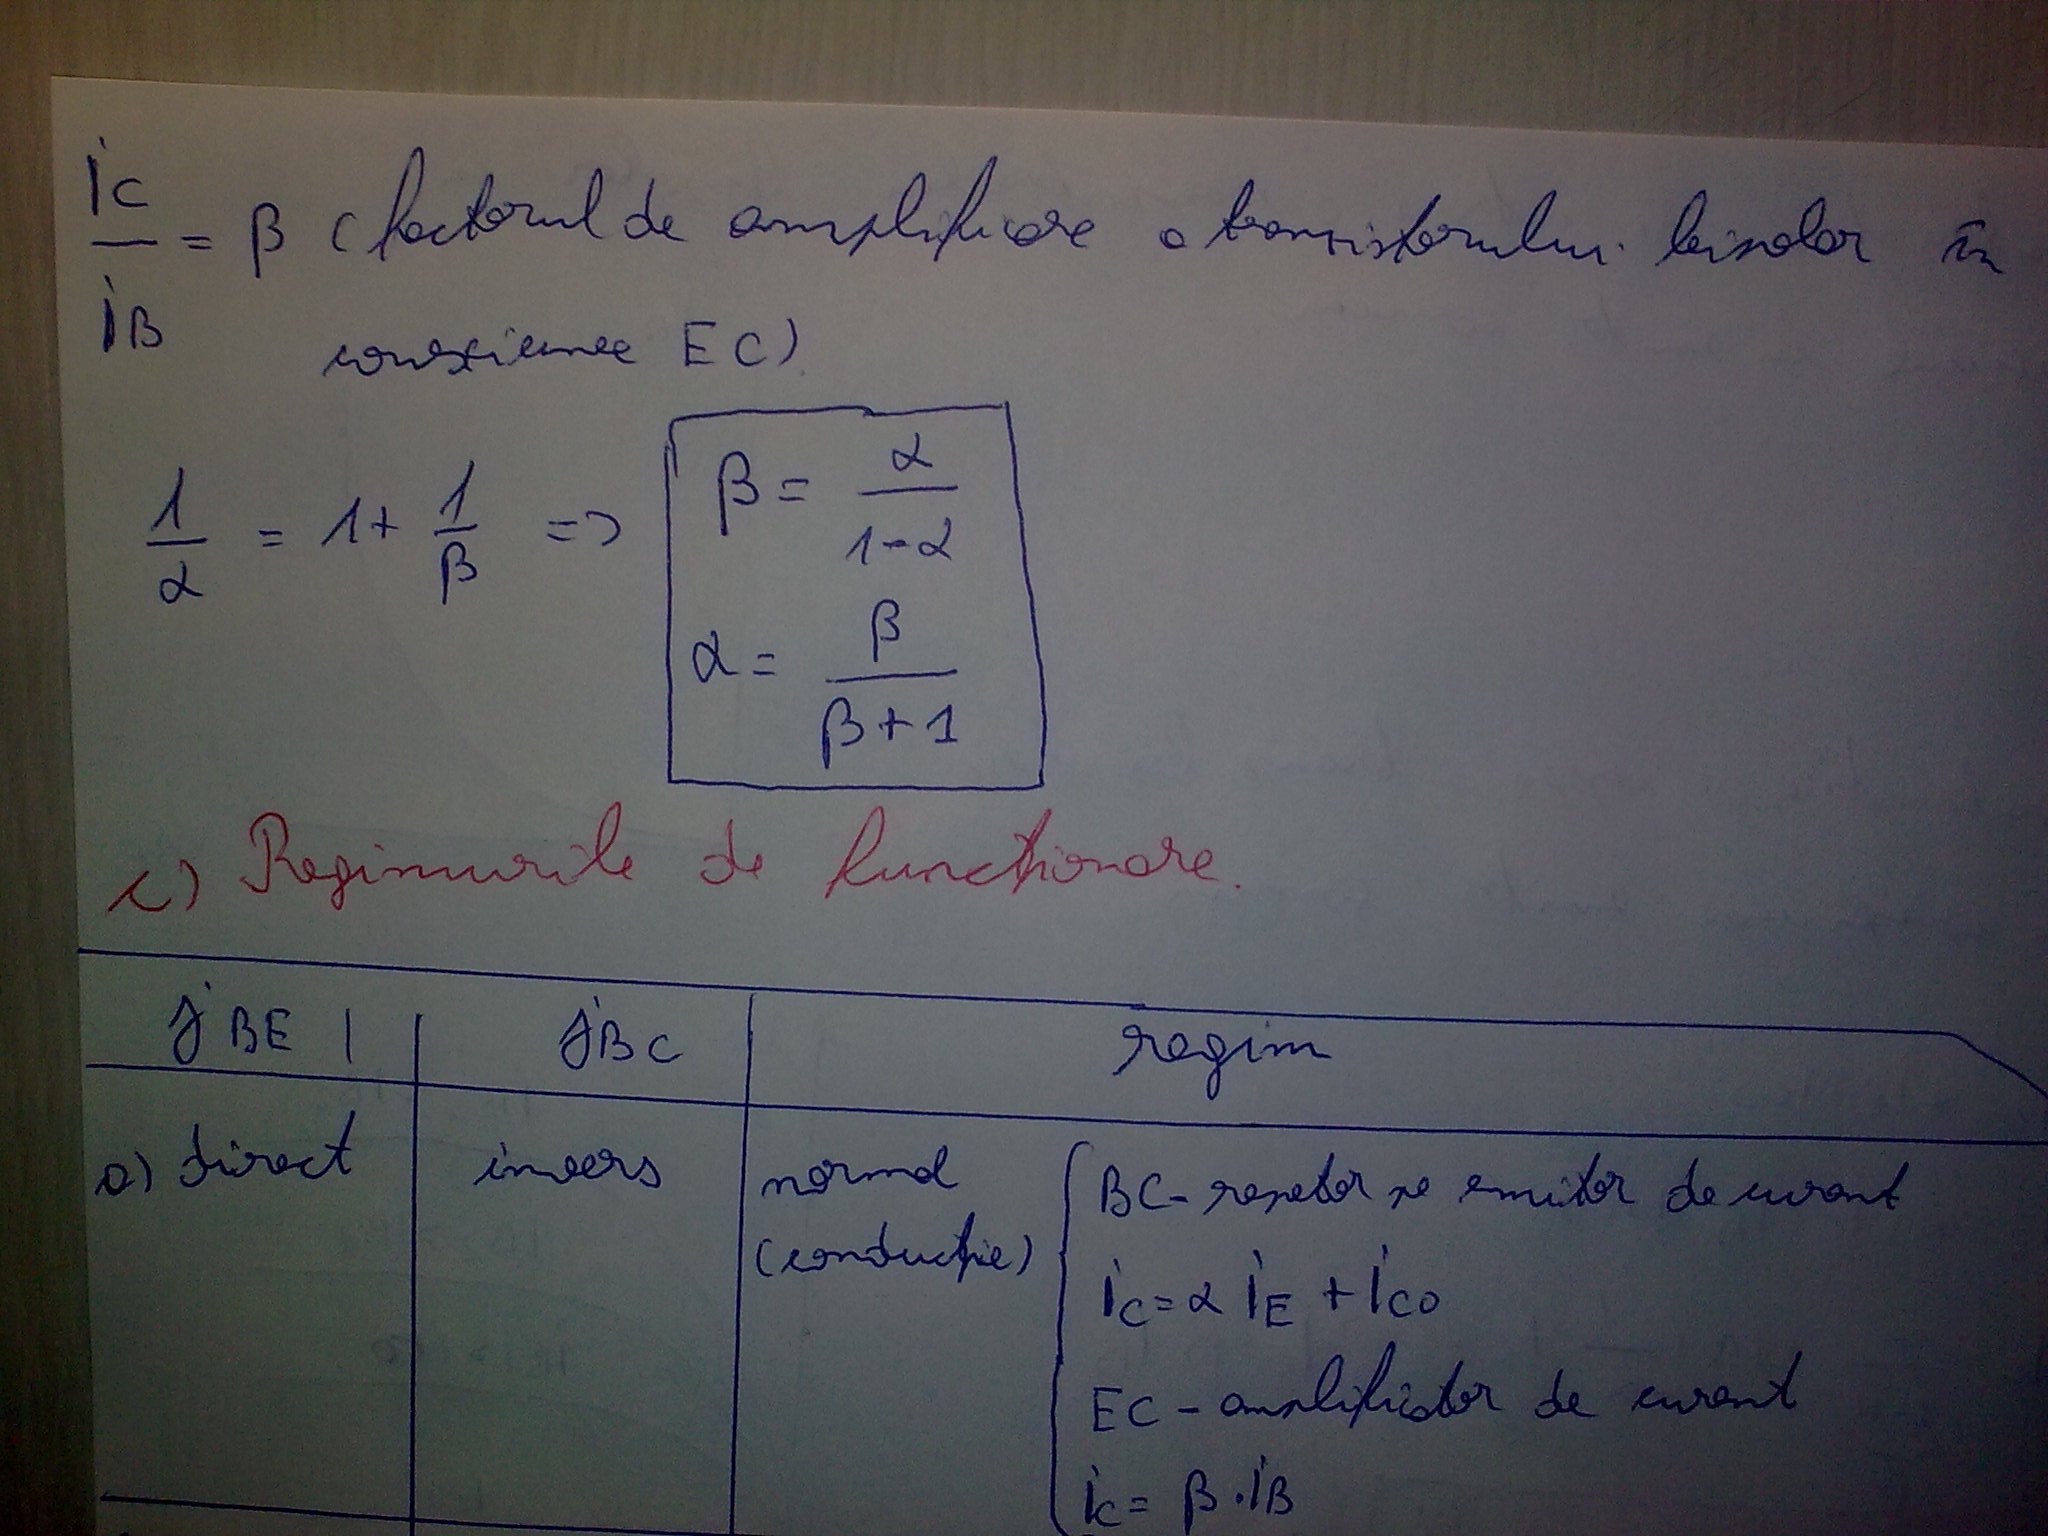 iC/iB = β (factorul de amplificare a tranzistorului bipolar în
conexiunea EC)
1/α = 1 + 1/β =>
β = α/(1-α)
α = β/(β+1)
c) Regimurile de funcționare.
jBE | jBC | regim
a) direct | invers | normal
(conducție)
BC - repetor pe emitor de curent
iC = α iE + iC0
EC - amplificator de curent
iC = β · iB